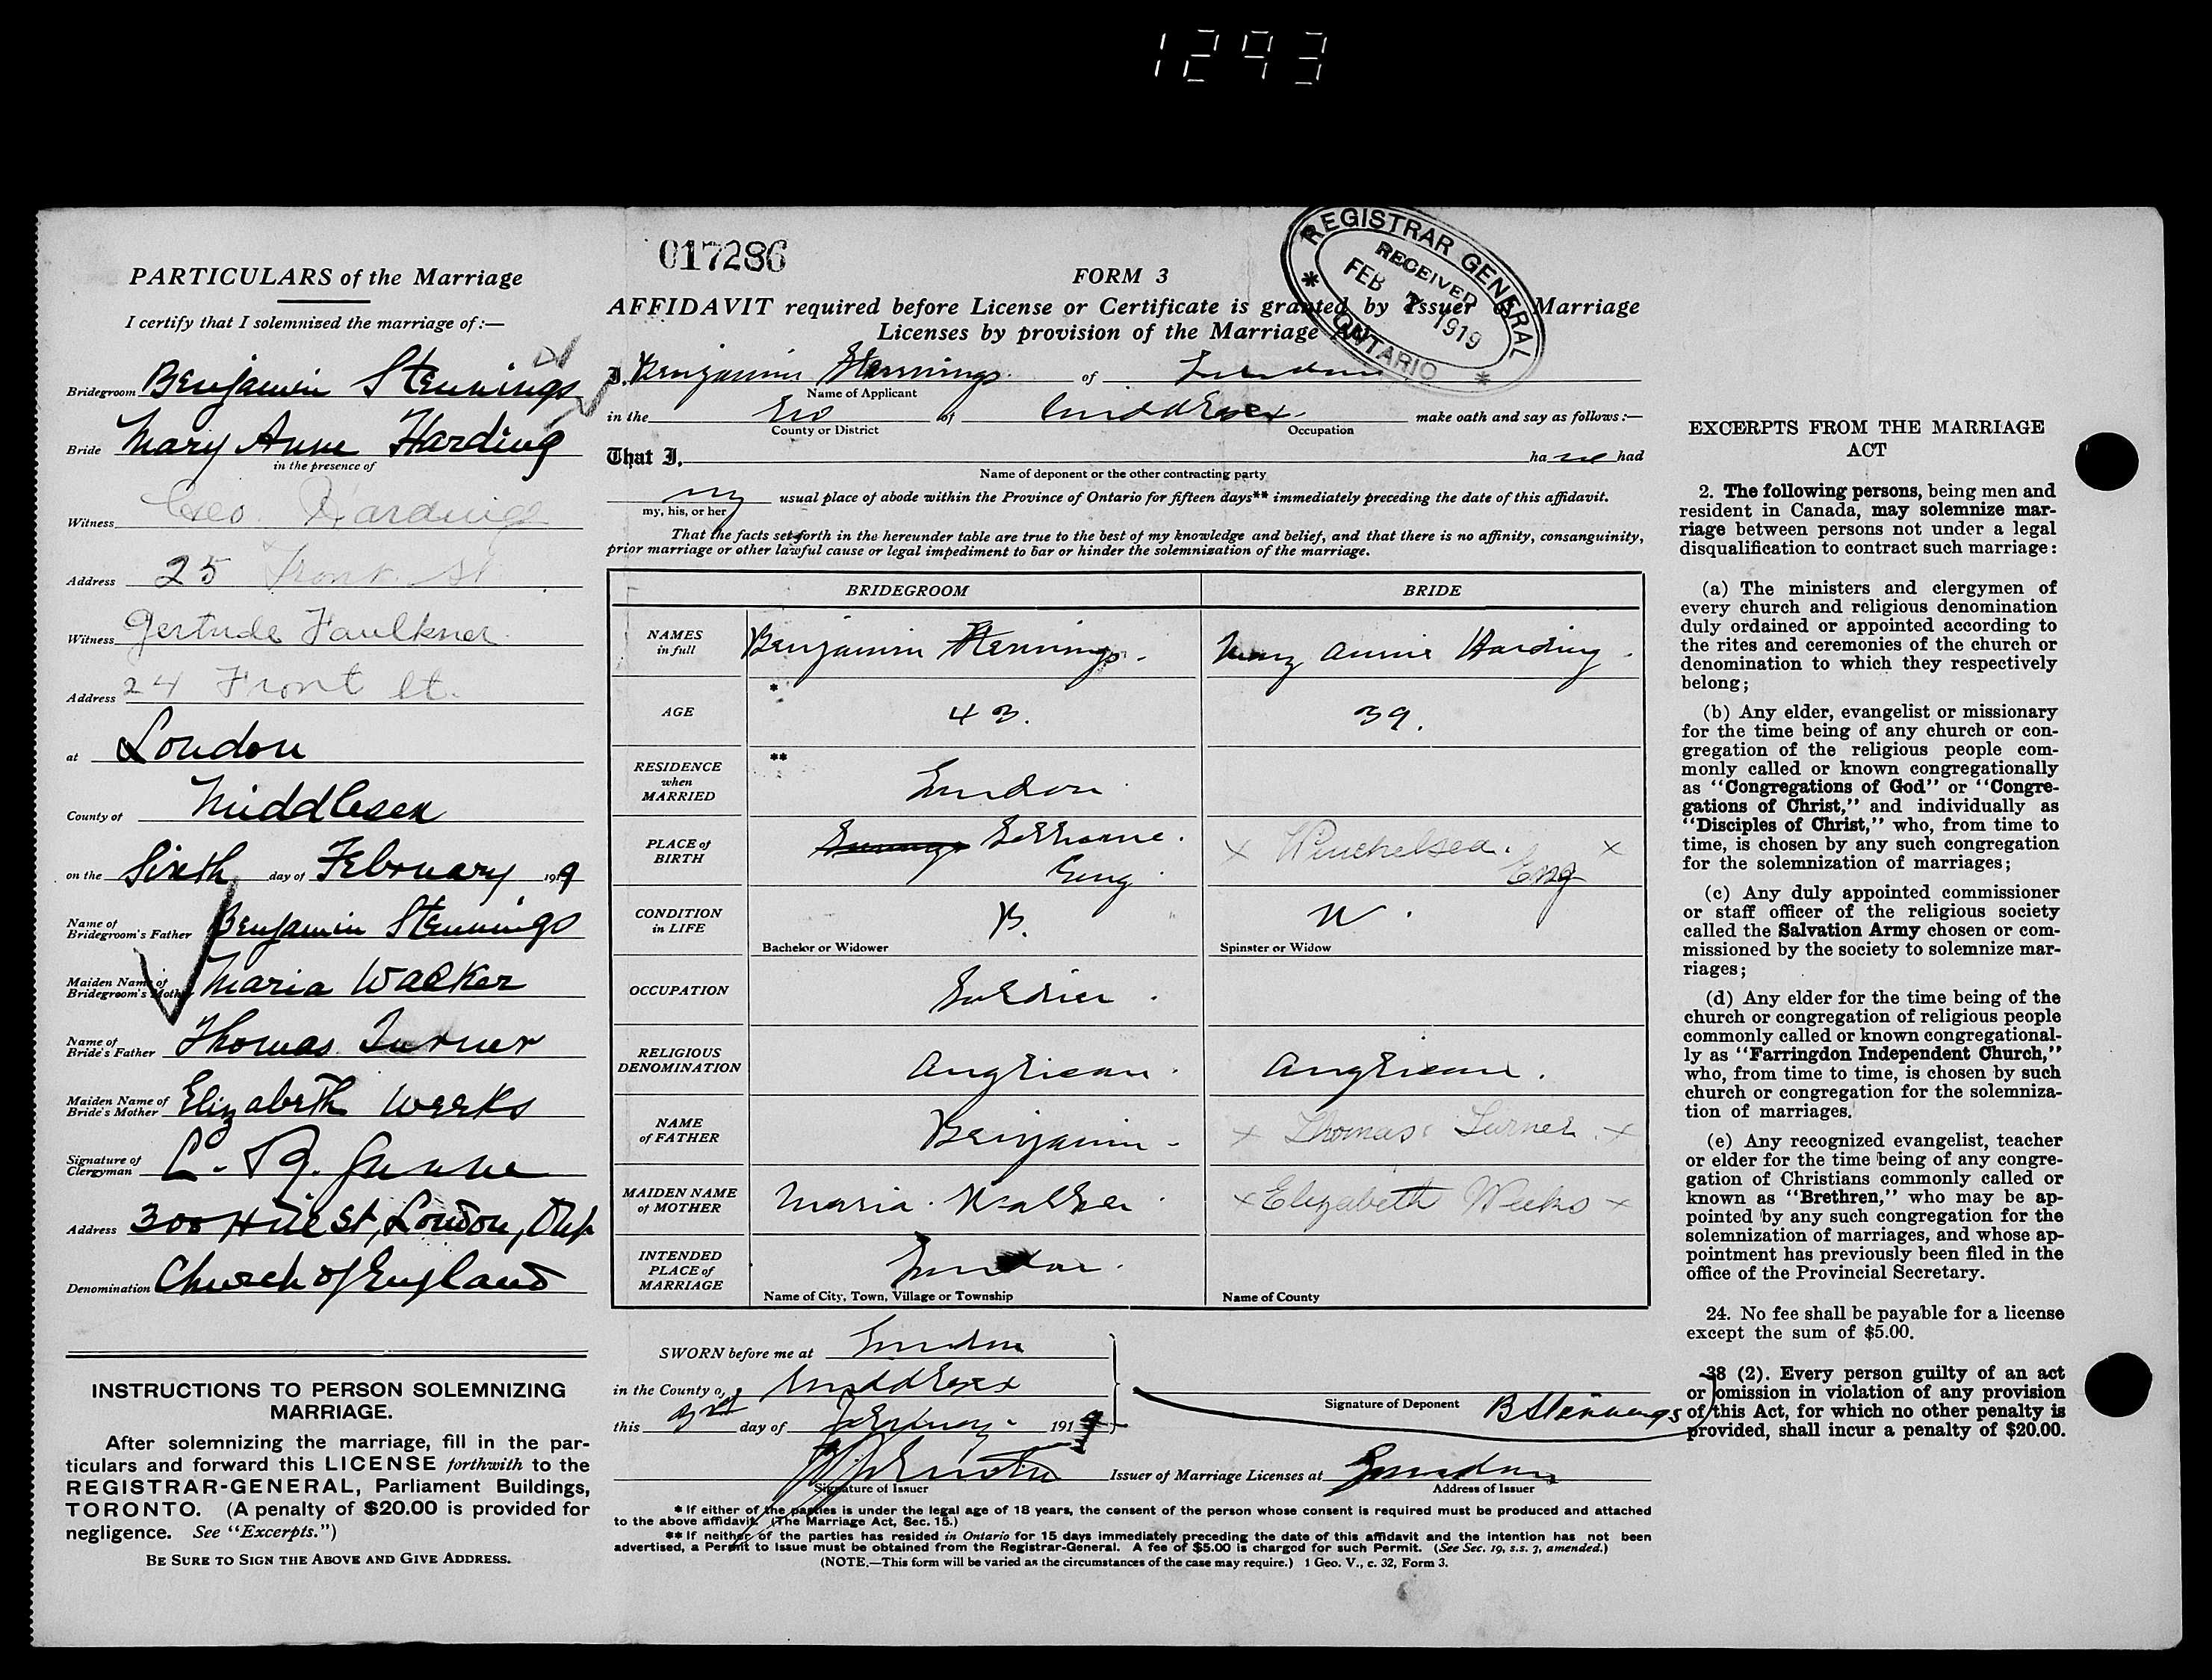 1293
PARTICULARS of the Marriage
I certify that I solemnized the marriage of:—
Bridegroom Benjamin Stennings
Bride Mary Anne Harding
in the presence of
Witness Geo Harding
Address 25 Front St
Witness Gertrude Faulkner
Address 24 Front St.
at London
County of Middlesex
on the Sixth day of February 1919
Name of Bridegroom's Father Benjamin Stennings
Maiden Name of Bridegroom's Mother Maria Walker
Name of Bride's Father Thomas Turner
Maiden Name of Bride's Mother Elizabeth Weeks
Signature of Clergyman
Address 300 Hill St, London, Ont
Denomination Church of England
INSTRUCTIONS TO PERSON SOLEMNIZING
MARRIAGE.
After solemnizing the marriage, fill in the par-
ticulars and forward this LICENSE forthwith to the
REGISTRAR-GENERAL, Parliament Buildings,
TORONTO. (A penalty of $20.00 is provided for
negligence. See "Excerpts.")
BE SURE TO SIGN THE ABOVE AND GIVE ADDRESS.
017286
FORM 3
REGISTRAR GENERAL
RECEIVED
FEB 7 1919
ONTARIO
AFFIDAVIT required before License or Certificate is granted by Issuer of Marriage
Licenses by provision of the Marriage Act
I, Benjamin Stennings of London
Name of Applicant
in the Co of Middlesex make oath and say as follows:—
County or District Occupation
That I, have had
Name of deponent or the other contracting party
my usual place of abode within the Province of Ontario for fifteen days** immediately preceding the date of this affidavit.
my, his, or her
That the facts set forth in the hereunder table are true to the best of my knowledge and belief, and that there is no affinity, consanguinity,
prior marriage or other lawful cause or legal impediment to bar or hinder the solemnization of the marriage.
BRIDEGROOM BRIDE
NAMES in full Benjamin Stennings. Mary Annie Harding.
AGE * 43. 39.
RESIDENCE when MARRIED ** London
PLACE of BIRTH Eng x Winchelsea. Eng x
CONDITION in LIFE B. W.
Bachelor or Widower Spinster or Widow
OCCUPATION Soldier.
RELIGIOUS DENOMINATION Anglican. Anglican.
NAME of FATHER Benjamin x Thomas Turner. x
MAIDEN NAME of MOTHER Maria Walker. x Elizabeth Weeks x
INTENDED PLACE of MARRIAGE London.
Name of City, Town, Village or Township Name of County
SWORN before me at London
in the County of Middlesex
this 3rd day of February 1919
Signature of Deponent B Stennings
Issuer of Marriage Licenses at London
Signature of Issuer Address of Issuer
* If either of the parties is under the legal age of 18 years, the consent of the person whose consent is required must be produced and attached
to the above affidavit. (The Marriage Act, Sec. 15.)
** If neither of the parties has resided in Ontario for 15 days immediately preceding the date of this affidavit and the intention has not been
advertised, a Permit to Issue must be obtained from the Registrar-General. A fee of $5.00 is charged for such Permit. (See Sec. 19, s.s. 3, amended.)
(NOTE.—This form will be varied as the circumstances of the case may require.) 1 Geo. V., c. 32, Form 3.
EXCERPTS FROM THE MARRIAGE
ACT
2. The following persons, being men and
resident in Canada, may solemnize mar-
riage between persons not under a legal
disqualification to contract such marriage:
(a) The ministers and clergymen of
every church and religious denomination
duly ordained or appointed according to
the rites and ceremonies of the church or
denomination to which they respectively
belong;
(b) Any elder, evangelist or missionary
for the time being of any church or con-
gregation of the religious people com-
monly called or known congregationally
as "Congregations of God" or "Congre-
gations of Christ," and individually as
"Disciples of Christ," who, from time to
time, is chosen by any such congregation
for the solemnization of marriages;
(c) Any duly appointed commissioner
or staff officer of the religious society
called the Salvation Army chosen or com-
missioned by the society to solemnize mar-
riages;
(d) Any elder for the time being of the
church or congregation of religious people
commonly called or known congregational-
ly as "Farringdon Independent Church,"
who, from time to time, is chosen by such
church or congregation for the solemniza-
tion of marriages.
(e) Any recognized evangelist, teacher
or elder for the time being of any congre-
gation of Christians commonly called or
known as "Brethren," who may be ap-
pointed by any such congregation for the
solemnization of marriages, and whose ap-
pointment has previously been filed in the
office of the Provincial Secretary.
24. No fee shall be payable for a license
except the sum of $5.00.
38 (2). Every person guilty of an act
or omission in violation of any provision
of this Act, for which no other penalty is
provided, shall incur a penalty of $20.00.